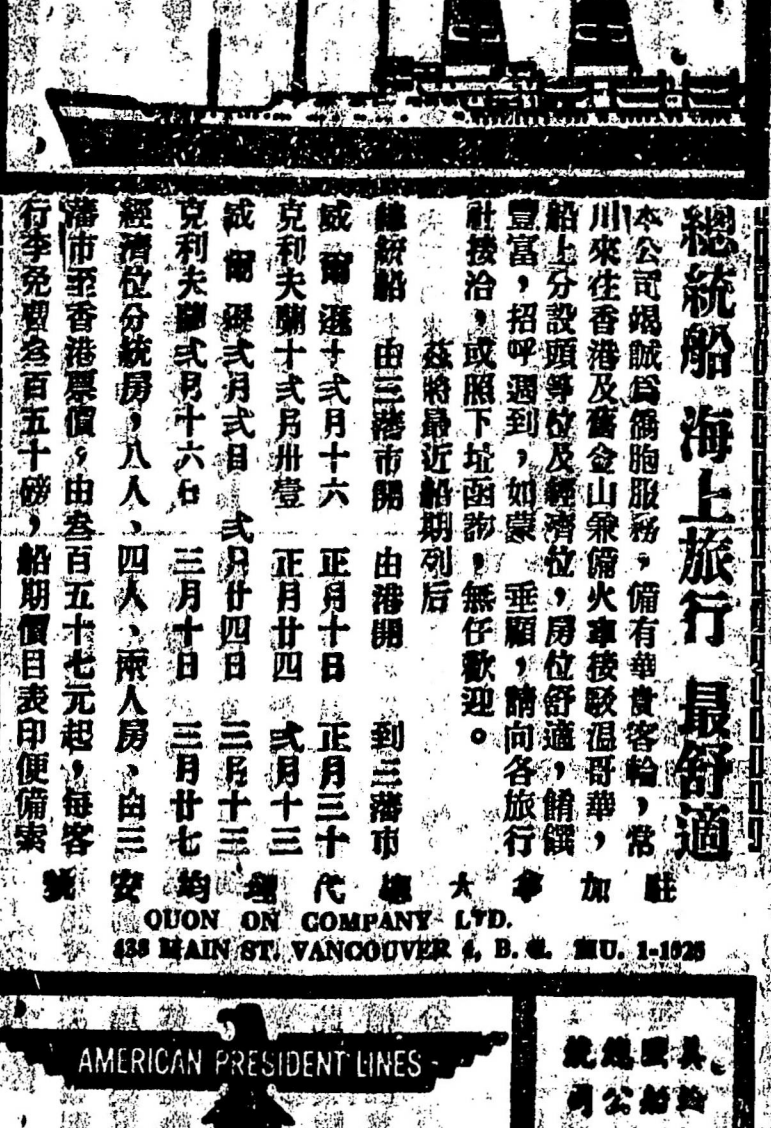 總統船 海上旅行 最舒適
本公司竭誠爲僑胞服務，備有華貴客輪，常
川來往香港及舊金山兼備火車接駁溫哥華，
船上分設頭等位及經濟位，房位舒適，餚饌
豐富，招呼週到，如蒙 垂顧，請向各旅行
社接洽，或照下址函詢，無任歡迎。
茲將最近船期列后
總統船 由三藩市開 由港開 到三藩市
威爾遜 十弍月十六 正月十日 正月三十
克利夫蘭 十弍月卅壹 正月廿四 弍月十三
威爾遜 弍月弍日 弍月廿四日 三月十三
克利夫蘭 弍月十六日 三月十日 三月廿七
經濟位分統房，八人、四人、兩人房、由三
藩市至香港票價，由叁百五十七元起，每客
行李免費叁百五十磅，船期價目表印便備索
駐加拿大總代理均安號
QUON ON COMPANY LTD.
438 MAIN ST. VANCOUVER 4, B. C. MU. 1-1926
AMERICAN PRESIDENT LINES
美國總統
輪船公司